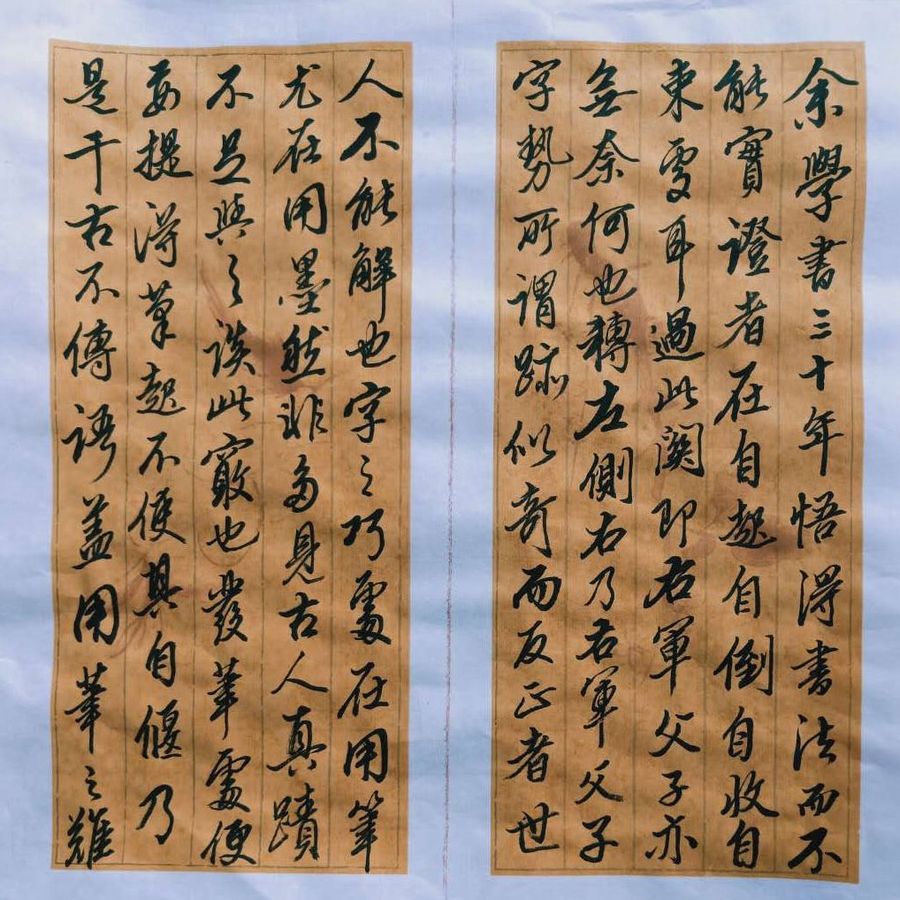 余學書三十年悟得書法而不
能實證者在自起自倒自收自
束處耳過此關即右軍父子亦
無奈何也轉左側右乃右軍父子
字勢所謂跡似奇而反正者世
人不能解也字之巧處在用筆
尤在用墨然非多見古人真蹟
不足與之談此竅也發筆處便
要提得筆起不使其自偃乃
是千古不傳語蓋用筆之難